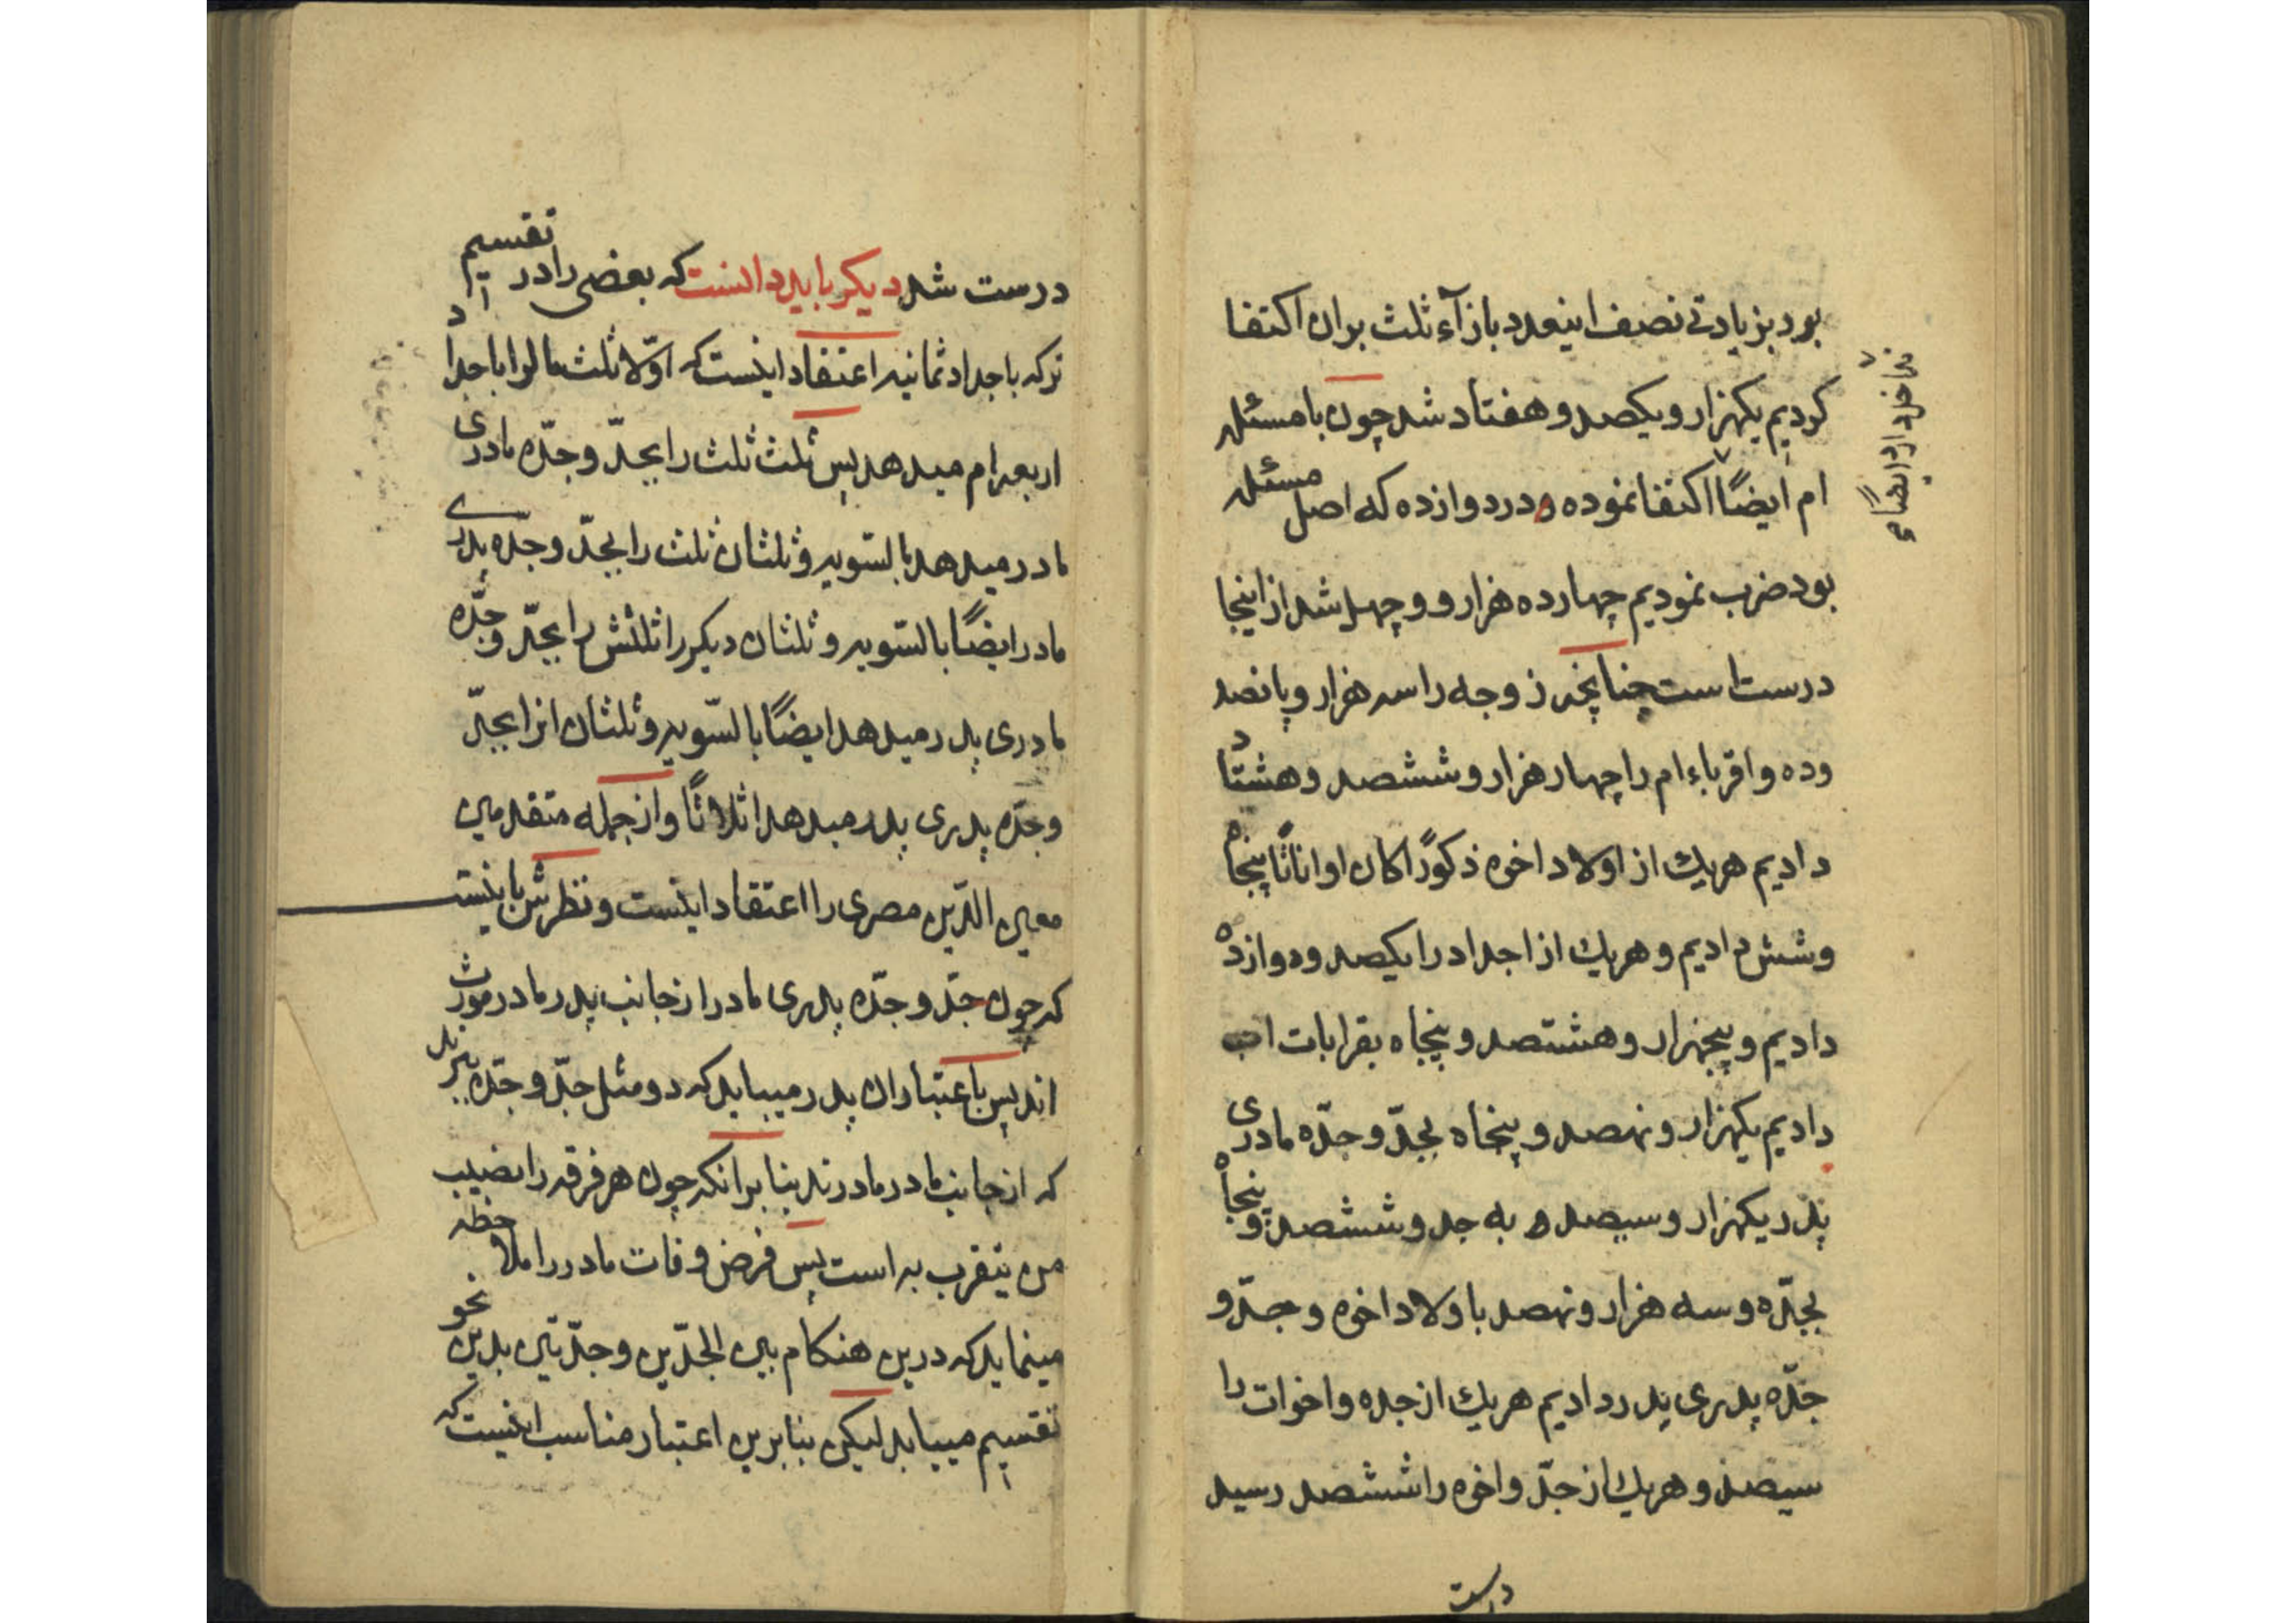 بود بزیادتی نصف اینعدد بازآء ثلث بران اکتفا
کردیم یکهزار و یکصد و هفتاد شد چون با مسئله
ام ایضًا اکتفا نموده و در دوازده که اصل مسئله
بود ضرب نمودیم چهارده هزار و و چهل شد از اینجا
درست است چنانچه زوجه را سه هزار و پانصد
و ده و اقرباء ام را چهار هزار و ششصد و هشتاد
دادیم هر یك از اولاد اخوه ذکورًا کان او اناثًا پنجاه
و شش دادیم و هر یك از اجداد را یکصد و دوازده
دادیم و پنجهزار و هشتصد و پنجاه بقرابات اب
دادیم یکهزار و نهصد و پنجاه بجدّ و جدّه مادری
پدر یکهزار و سیصد و به جد و ششصد و پنجاه
بجدّه و سه هزار و نهصد باولاد اخوه و جدّ و
جدّه پدری پدر دادیم هر یك از جده و اخوات را
سیصد و هر یك از جدّ و اخوه را ششصد رسید
درست
درست شد دیکر باید دانست که بعضی را در تقسیم
ترکه باجداد ثمانیه اعتقاد اینست که اوّلا ثلث مالرا باجداد
اربعه ام میدهد پس ثلث ثلث را بجدّ و جدّه مادری
مادر میدهد بالسّویه و ثلثان ثلث را بجدّ و جدّه پدری
مادر ایضًا بالسّویه و ثلثان دیکر را ثلثش را بجدّ و جدّه
مادری پدر میدهد ایضًا بالسّویه و ثلثان انرا بجدّ
و جدّه پدری پدر میدهد اثلاثًا و از جمله متقدمین
معین الدّین مصری را اعتقاد اینست و نظرش باینست
که چون جدّ و جدّه پدری مادر از جانب پدر مادر مورث
اند پس باعتبار ان پدر میباید که دو مثل جدّ و جدّه ببرند
که از جانب مادر مادرند بنا بر انکه چون هر فرقه را نصیب
من یتقرب به است پس فرض وفات مادر را ملاحظه
مینماید که درین هنکام بین الجدّین و جدّتین بدین نحو
تقسیم میباید لیکن بنابرین اعتبار مناسب اینست که